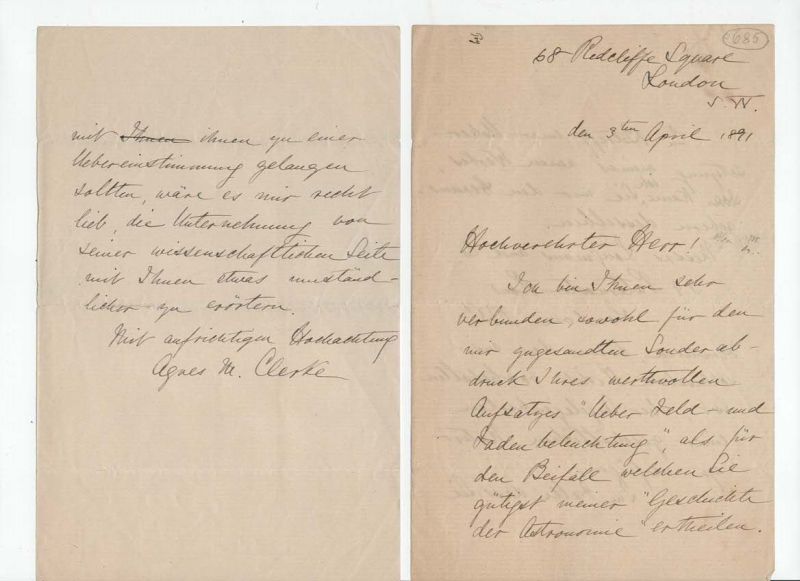 685
68 Redcliffe Square
London
S. W.
den 3ten April 1891
Hochverehrter Herr!
Ich bin Ihnen sehr
verbunden, sowohl für den
mir zugesandten Sonderab-
druck Ihres werthvollen
Aufsatzes "Ueber Feld- und
Fadenbeleuchtung", als für
den Beifall welchen Sie
gütigst meiner "Geschichte
der Astronomie" ertheilen.
mit Ihnen ihnen zu einer
Uebereinstimmung gelangen
sollten, wäre es mir recht
lieb, die Unternehmung von
seiner wissenschaftlichen Seite
mit Ihnen etwas umständ-
licher zu erörtern.
Mit aufrichtiger Hochachtung
Agnes M. Clerke